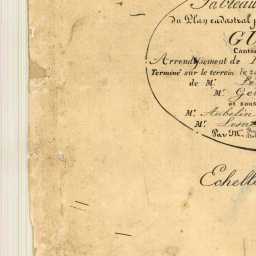 Tableau
du Plan cadastral p
GU
Canto
Arrondissement de
Terminé sur le terrein le
de M.r
M.r Ge
et sous
M.r Aubelin
M.r
Par M.
Echelle